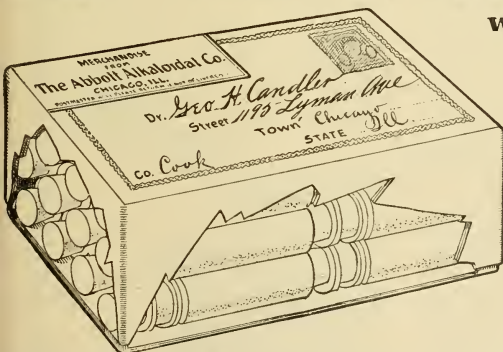 W
MERCHANDISE
FROM
The Abbott Alkaloidal Co.
CHICAGO, ILL.
Dr. Geo. H. Candler
Street 1195 Lyman Ave
Town Chicago
STATE Ill
Co. Cook